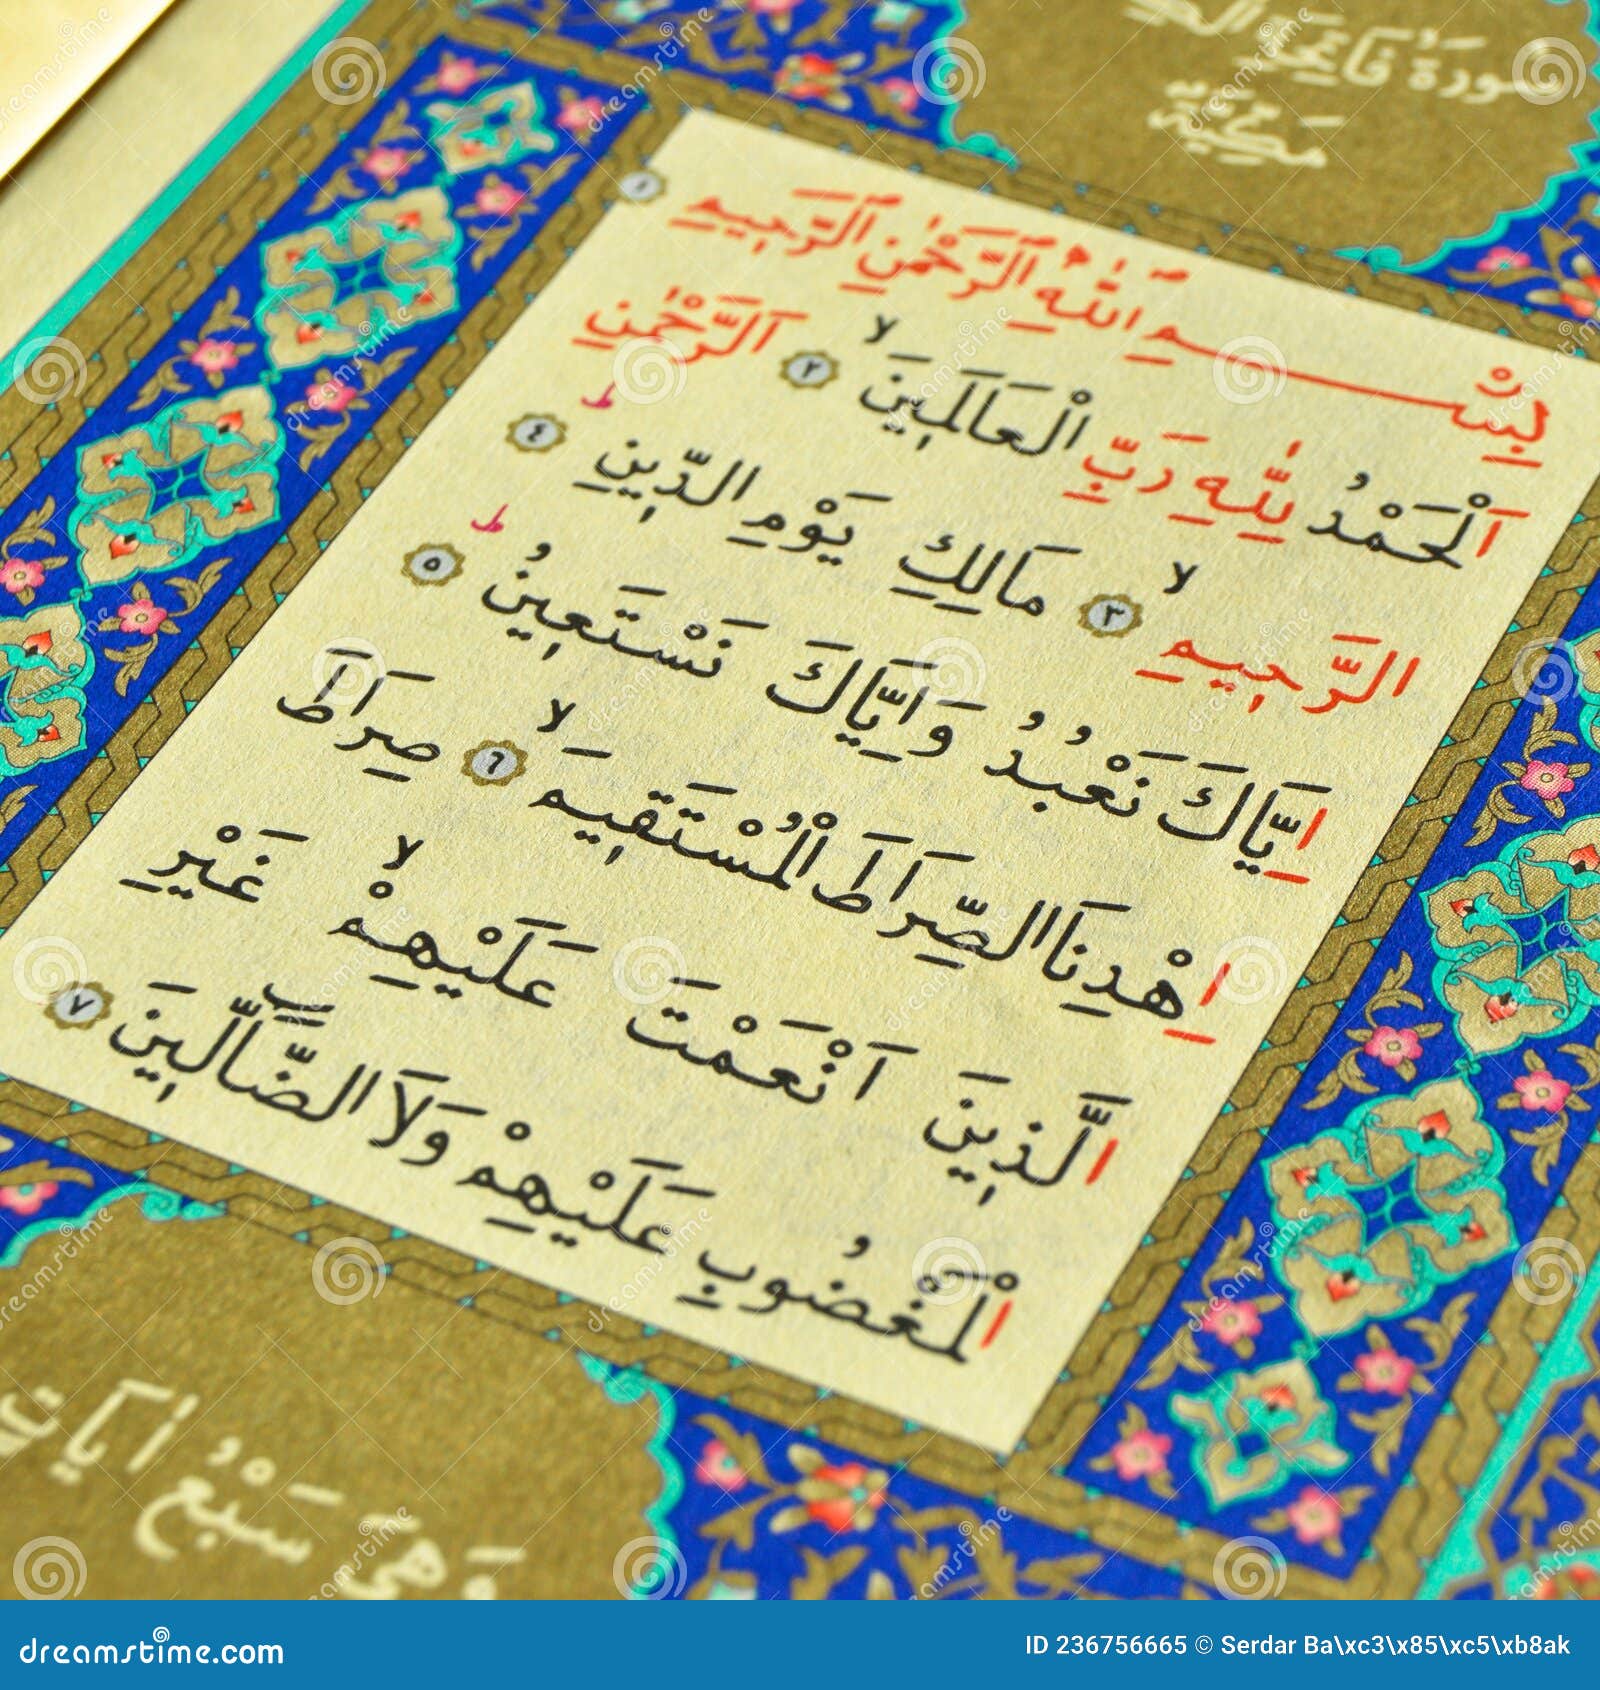 سُورَةُ فَاتِحَةِ
مَكِّيَّةٌ
بِسْمِ اللّٰهِ الرَّحْمٰنِ الرَّحِيمِ ١
اَلْحَمْدُ لِلّٰهِ رَبِّ الْعَالَمِينَۙ ٢ اَلرَّحْمٰنِ
الرَّحِيمِۙ ٣ مَالِكِ يَوْمِ الدِّينِۜ ٤
اِيَّاكَ نَعْبُدُ وَاِيَّاكَ نَسْتَعِينُۜ ٥
اِهْدِنَا الصِّرَاطَ الْمُسْتَقِيمَۙ ٦ صِرَاطَ
الَّذِينَ اَنْعَمْتَ عَلَيْهِمْۙ غَيْرِ
الْمَغْضُوبِ عَلَيْهِمْ وَلَا الضَّٓالِّينَ ٧
وَهِيَ سَبْعُ اٰيَاتٍ
dreamstime.com
ID 236756665 © Serdar Ba\xc3\x85\xc5\xb8ak